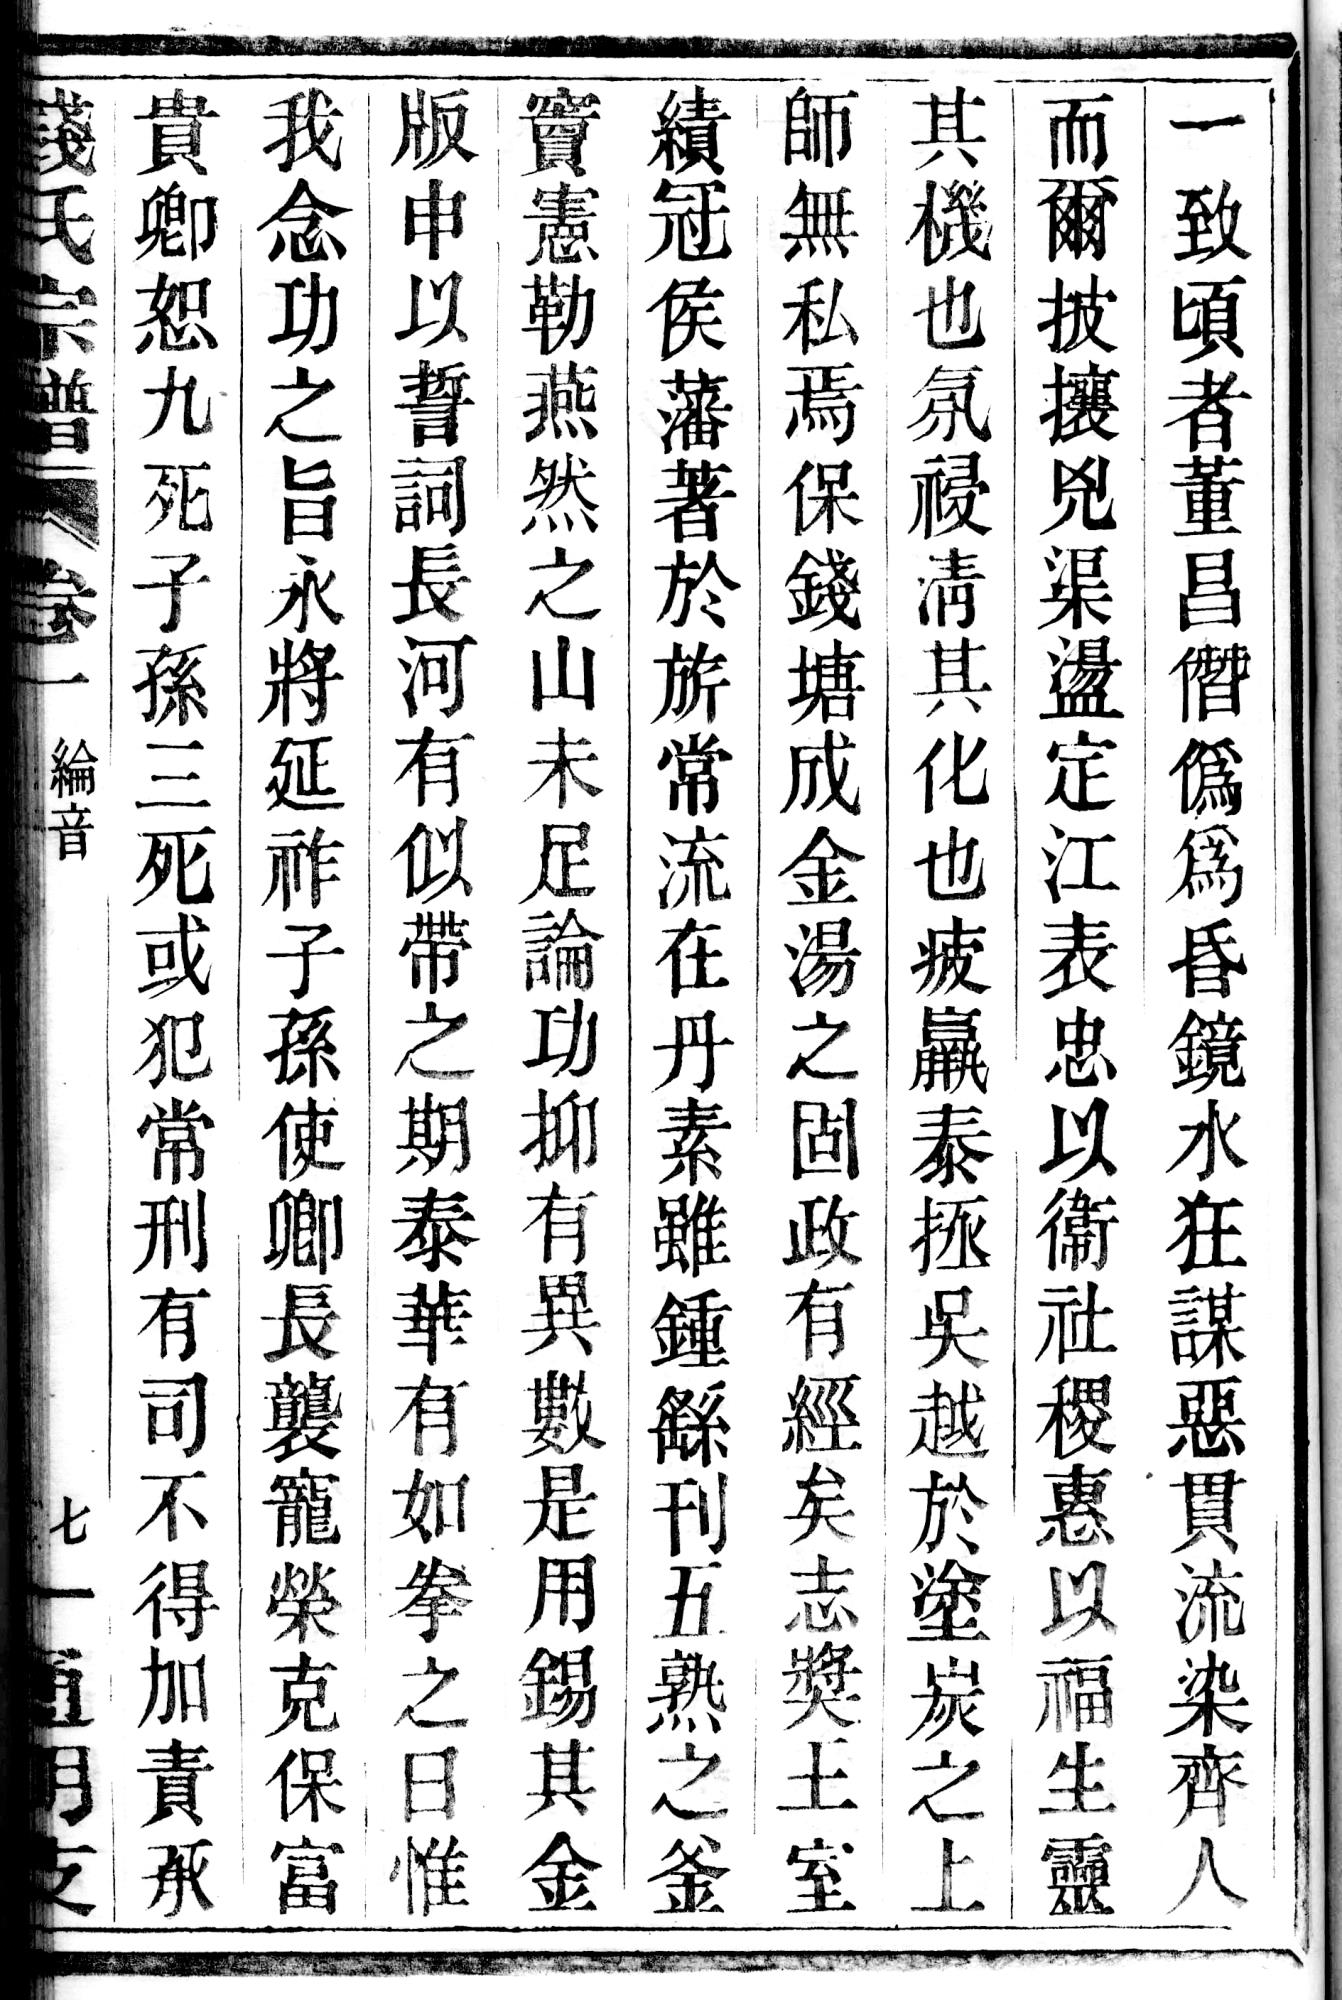 一致頃者董昌僭僞爲昏鏡水狂謀惡貫流染齊人
而爾披攘兇渠盪定江表忠以衞社稷惠以福生靈
其機也氛祲淸其化也疲羸泰拯吳越於塗炭之上
師無私焉保錢塘成金湯之固政有經矣志奬王室
績冠侯藩著於旂常流在丹素雖鍾繇刊五熟之釜
竇憲勒燕然之山未足論功抑有異數是用錫其金
版申以誓詞長河有似帶之期泰華有如拳之日惟
我念功之旨永將延祚子孫使卿長襲寵榮克保富
貴卿恕九死子孫三死或犯常刑有司不得加責承
錢氏宗譜 卷一 綸音 七 一 通明支